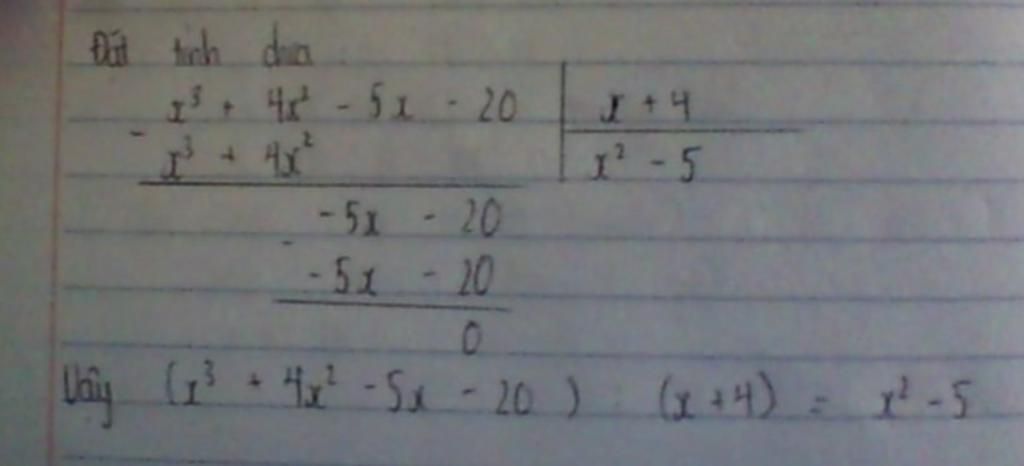 Đặt tính chia
x³ + 4x² - 5x - 20 | x + 4
- x³ + 4x² | x² - 5
-5x - 20
- -5x - 20
0
Vậy (x³ + 4x² - 5x - 20) : (x + 4) = x² - 5